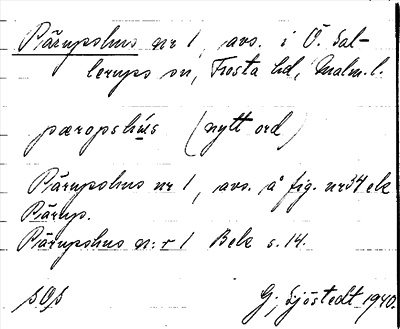 Pärupshus nr 1, avs. i Ö. Sal-
lerups sn, Frosta hd, Malm. l.
pæropshús (nytt ord)
Pärupshus nr 1, avs. å fig. nr 34 ek
Pärup.
Pärupshus n:r 1 Bebk s. 14.
G; Sjöstedt 1940.